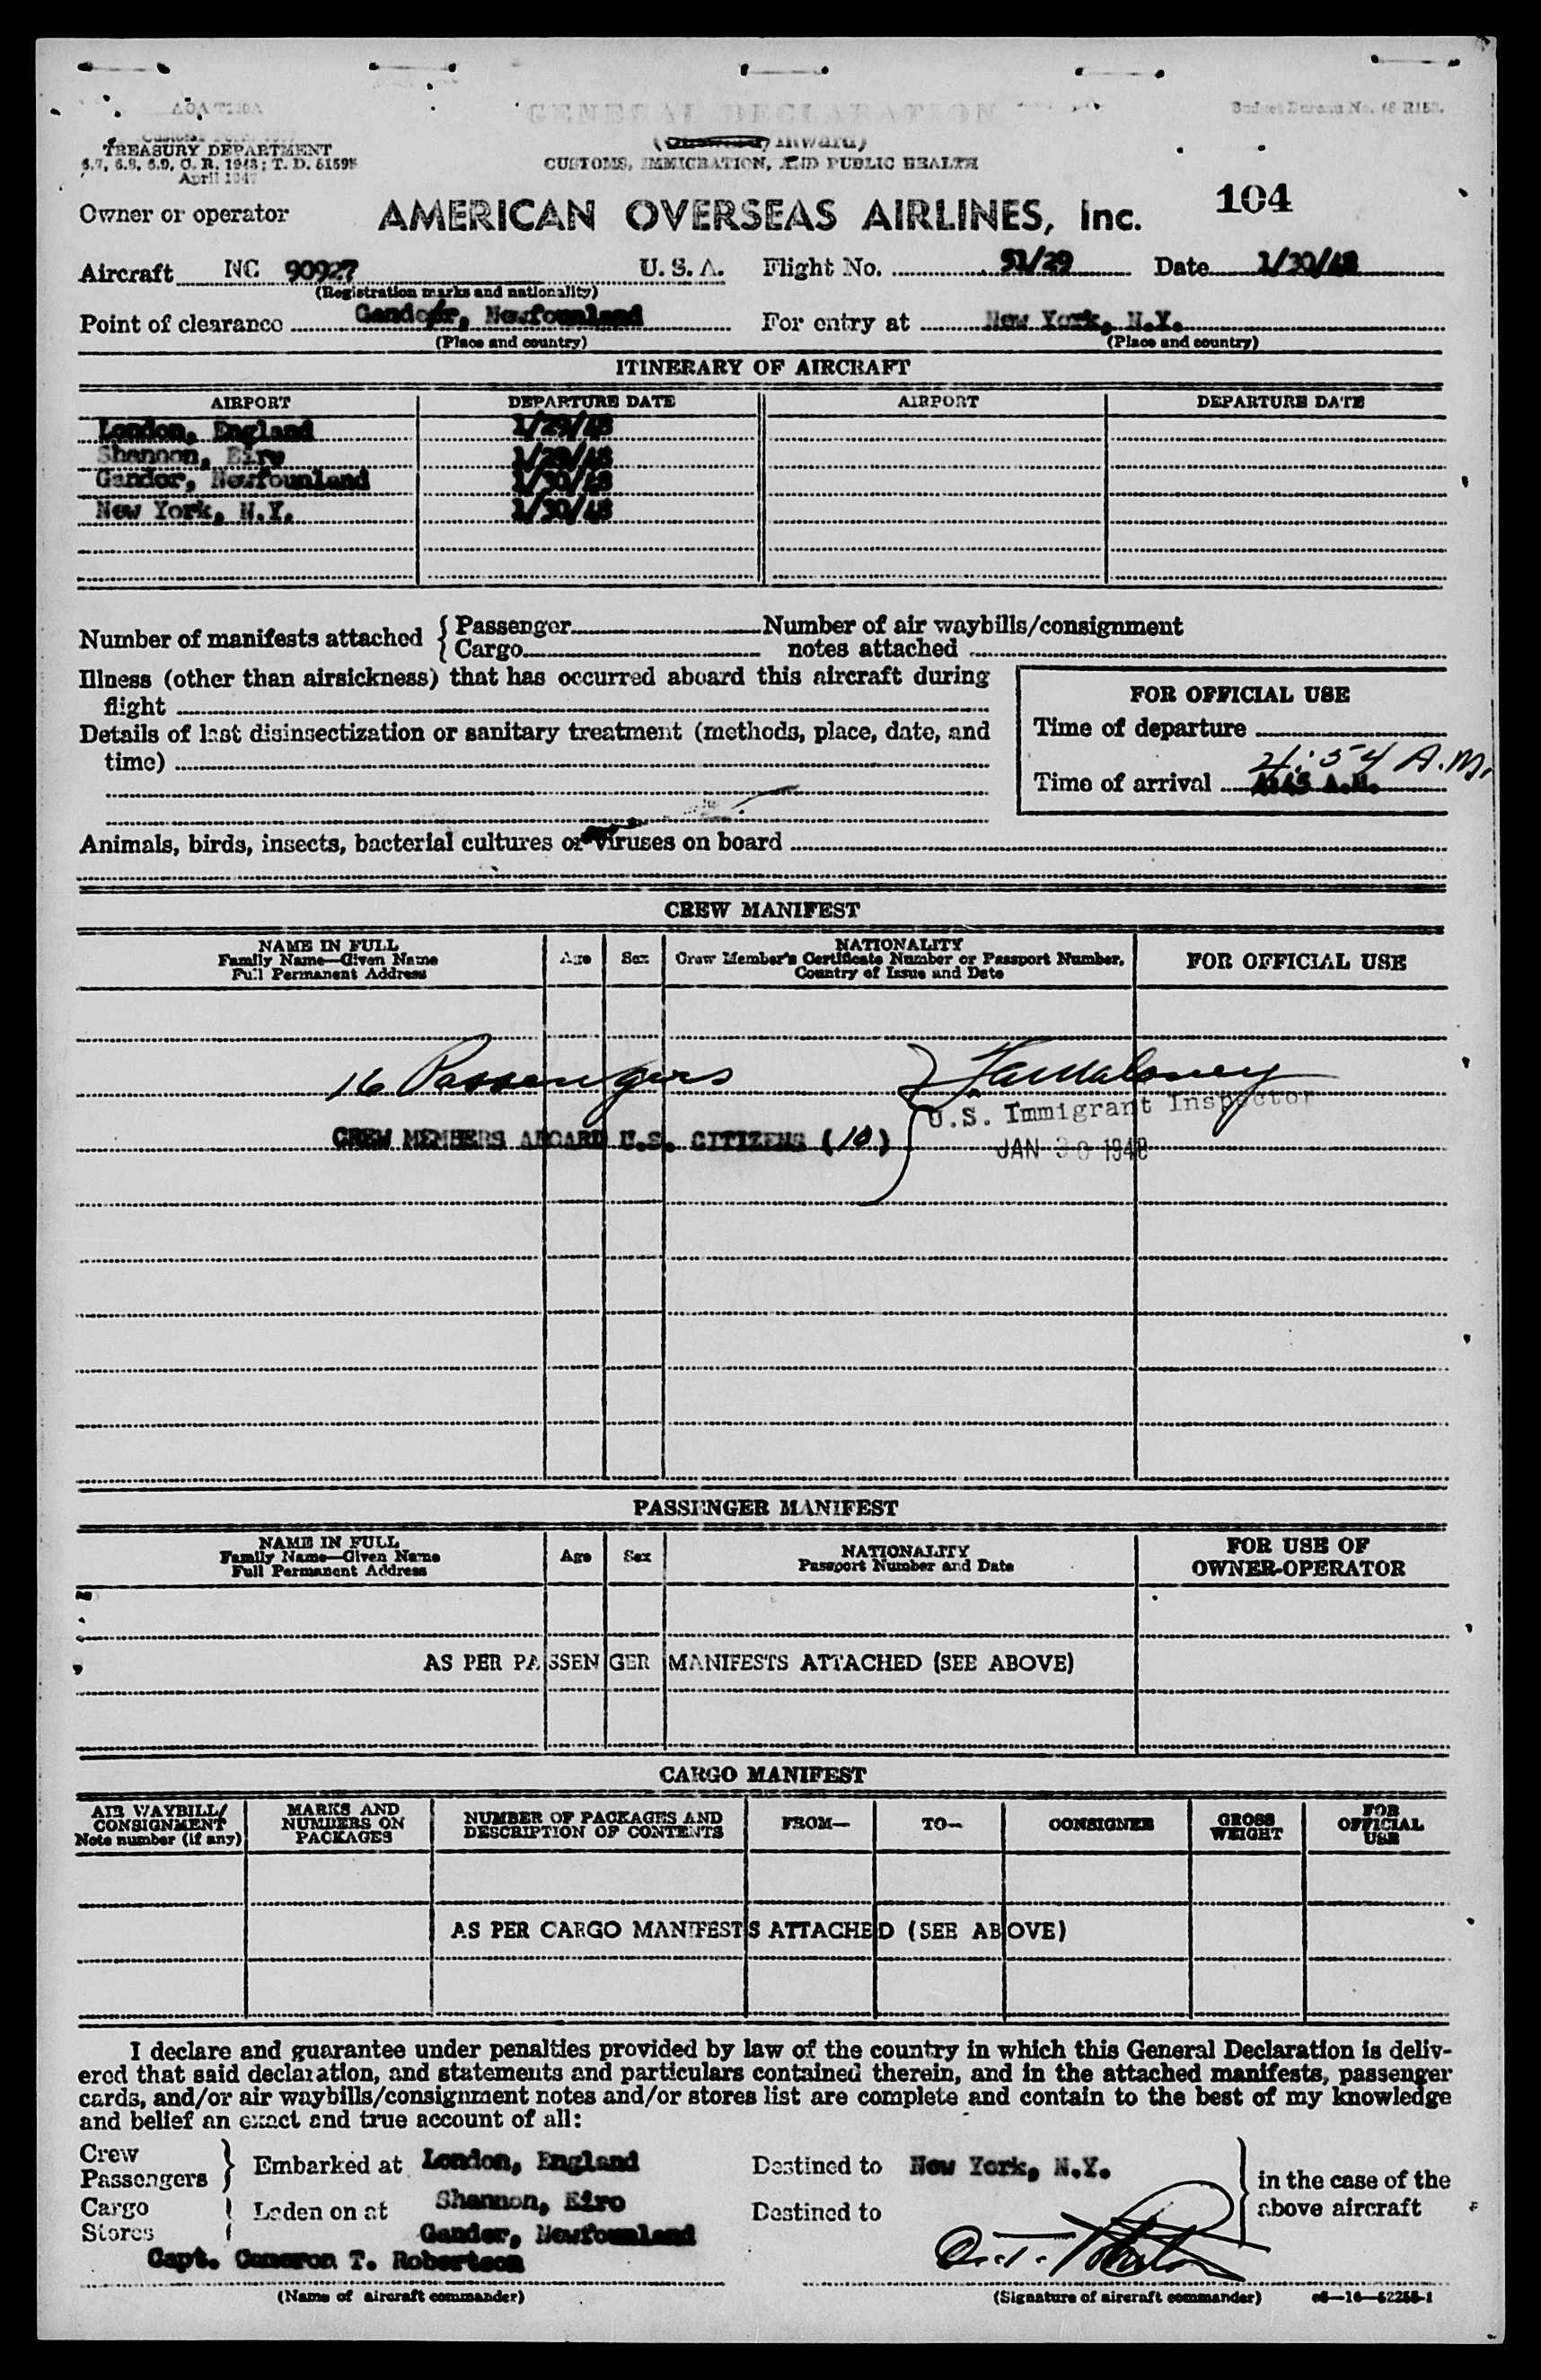 GENERAL DECLARATION
Budget Bureau No.
TREASURY DEPARTMENT
(Inward)
CUSTOMS, IMMIGRATION, AND PUBLIC HEALTH
April 1947
104
Owner or operator AMERICAN OVERSEAS AIRLINES, Inc.
Aircraft NC 90927 U. S. A. Flight No. 51/29 Date 1/30/48
(Registration marks and nationality)
Point of clearance Newfounland For entry at New York, N.Y.
(Place and country) (Place and country)
ITINERARY OF AIRCRAFT
AIRPORT DEPARTURE DATE AIRPORT DEPARTURE DATE
London, England 1/29/48
Shannon, Eire 1/29/48
Gander, Newfounland 1/30/48
New York, N.Y. 1/30/48
Number of manifests attached { Passenger Number of air waybills/consignment
Cargo notes attached
Illness (other than airsickness) that has occurred aboard this aircraft during
flight
FOR OFFICIAL USE
Details of last disinsectization or sanitary treatment (methods, place, date, and
time)
Time of departure
4:54 A.M.
Time of arrival A.M.
Animals, birds, insects, bacterial cultures or viruses on board
CREW MANIFEST
NAME IN FULL
Family Name—Given Name
Full Permanent Address
Age Sex
NATIONALITY
Crew Member's Certificate Number or Passport Number,
Country of Issue and Date
FOR OFFICIAL USE
16 Passengers
U.S. Immigrant Inspector
CREW MEMBERS ABOARD U.S. CITIZENS (10)
JAN 30 1948
PASSENGER MANIFEST
NAME IN FULL
Family Name—Given Name
Full Permanent Address
Age Sex
NATIONALITY
Passport Number and Date
FOR USE OF
OWNER-OPERATOR
AS PER PASSENGER MANIFESTS ATTACHED (SEE ABOVE)
CARGO MANIFEST
AIR WAYBILL/
CONSIGNMENT
Note number (if any)
MARKS AND
NUMBERS ON
PACKAGES
NUMBER OF PACKAGES AND
DESCRIPTION OF CONTENTS
FROM—
TO—
CONSIGNEE
GROSS
WEIGHT
FOR
OFFICIAL
USE
AS PER CARGO MANIFESTS ATTACHED (SEE ABOVE)
I declare and guarantee under penalties provided by law of the country in which this General Declaration is deliv-
ered that said declaration, and statements and particulars contained therein, and in the attached manifests, passenger
cards, and/or air waybills/consignment notes and/or stores list are complete and contain to the best of my knowledge
and belief an exact and true account of all:
Crew
Passengers } Embarked at London, England Destined to New York, N.Y.
in the case of the
above aircraft
Cargo
Stores Laden on at Shannon, Eire Destined to
Gander, Newfounland
Capt. Cameron T. Robertson
(Name of aircraft commander) (Signature of aircraft commander)